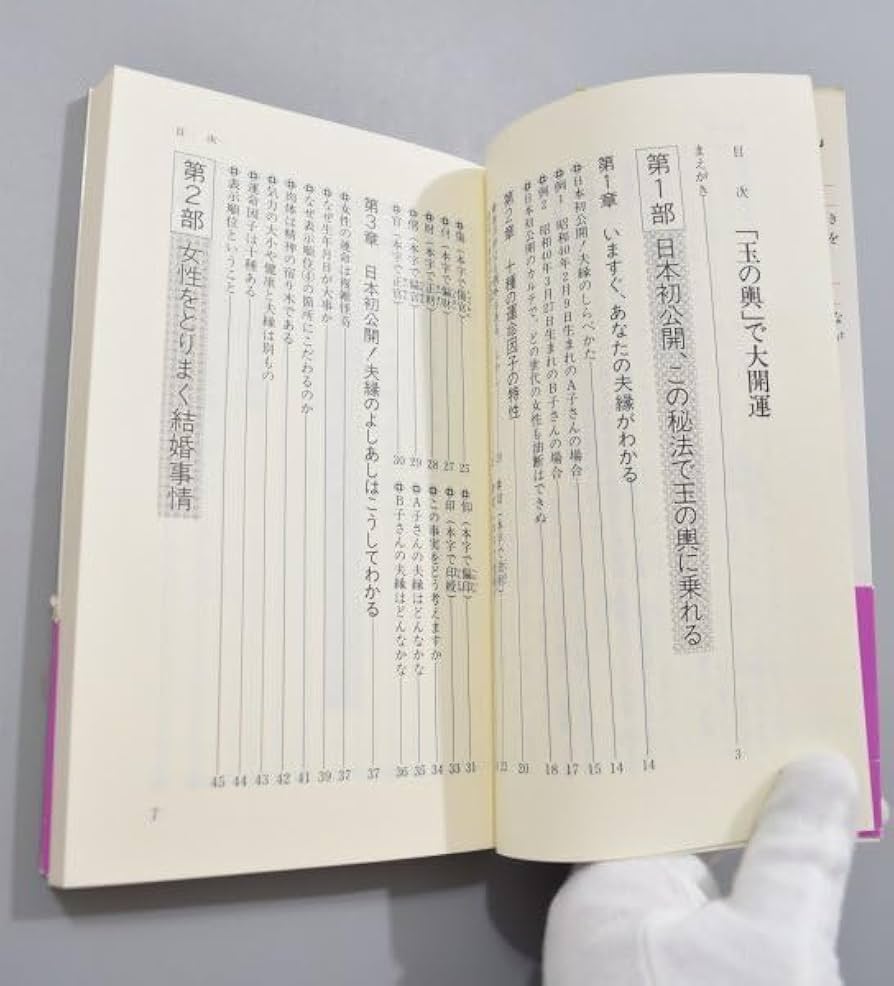 目次
「玉の輿」で大開運
まえがき 3
第1部 日本初公開、この秘法で玉の輿に乗れる 14
第1章 いますぐ、あなたの夫縁がわかる 14
日本初公開！夫縁のしらべかた 15
例1 昭和40年2月9日生まれのA子さんの場合 17
例2 昭和40年3月27日生まれのB子さんの場合 18
日本初公開のカルテで、どの世代の女性も油断はできぬ 20
第2章 十種の運命因子の特性
傷（本字で傷官） 25
才（本字で偏財） 27
財（本字で正財） 28
偏（本字で偏官） 29
官（本字で正官） 30
印（本字で印綬） 33
この事実をどう考えますか 34
A子さんの夫縁はどんなかな 35
B子さんの夫縁はどんなかな 36
第3章 日本初公開！夫縁のよしあしはこうしてわかる 37
女性の運命は複雑怪奇 37
なぜ生年月日が大事か 39
なぜ表示順位④の箇所にこだわるのか 41
肉体は精神の宿り木である 42
気力の大小や健康と夫縁は別もの 43
運命因子は十種ある 44
表示順位ということ 45
第2部 女性をとりまく結婚事情
目次
7